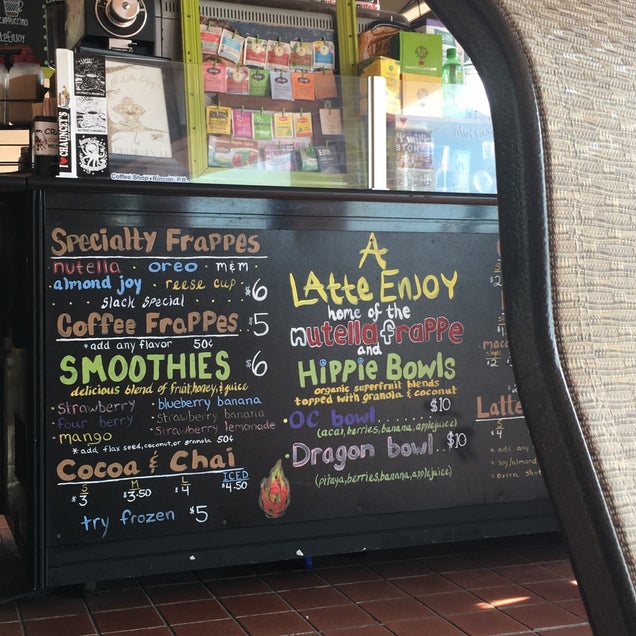 Coffee Shop • Rincón, P.R
I ♥ CHAUNCEY'S
Specialty Frappes
nutella • oreo • m&m •
almond joy • reese cup •
slack special
$6
Coffee Frappes $5
*add any flavor 50¢
SMOOTHIES $6
delicious blend of fruit, honey, & juice
• strawberry
• blueberry banana
four berry
• strawberry banana
• mango
• strawberry lemonade
*add flax seed, coconut, or granola 50¢
Cocoa & Chai
S M L ICED
$3 $3.50 $4 $4.50
try frozen $5
A
LAtte EnJOY
home of the
nutella frappe
and
HiPPie BowLs
organic superfruit blends
topped with granola & coconut
• OC bowl $10
(acai, berries, banana, apple juice)
• Dragon bowl $10
(pitaya, berries, banana, apple juice)
Latte
$4
• add any
• soy/almond
• extra sho